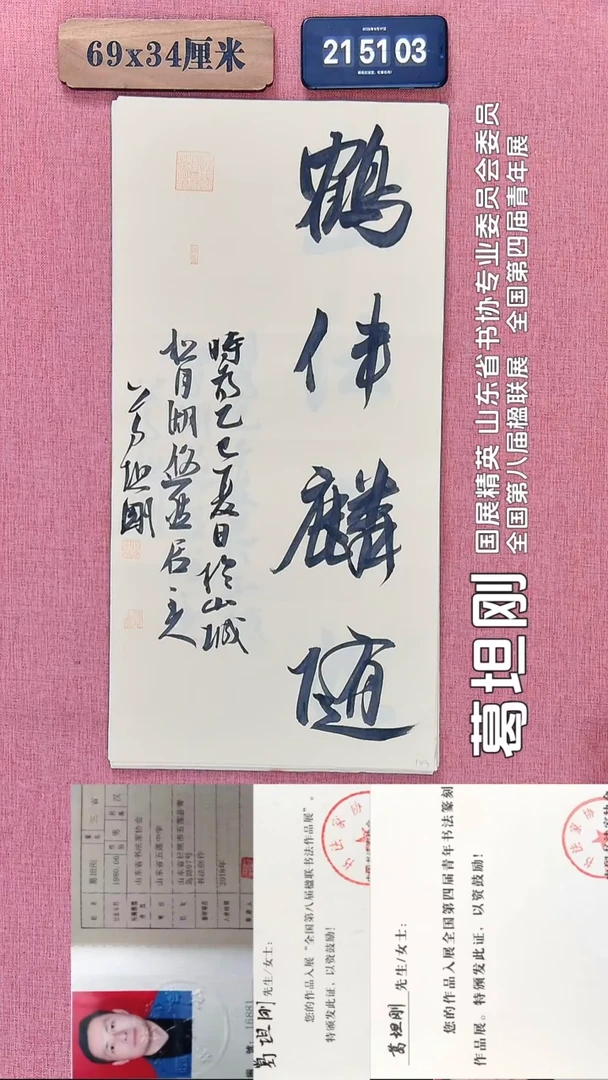 69x34厘米
21 51 03
鹤
伴
麟
随
時为乙巳夏日於山城
松月湖悠然居主人
葛坦刚
国展精英 山东省书协专业委员会委员
全国第八届楹联展 全国第四届青年展
葛坦刚
1980.06
汉
山东省书法家协会
山东省五莲中学
书法创作
2018年
16881
葛坦刚 先生/女士:
您的作品入展“全国第八届楹联书法作品展”。
特颁发此证，以资鼓励!
葛坦刚 先生/女士:
您的作品入展全国第四届青年书法篆刻
作品展。特颁发此证，以资鼓励!